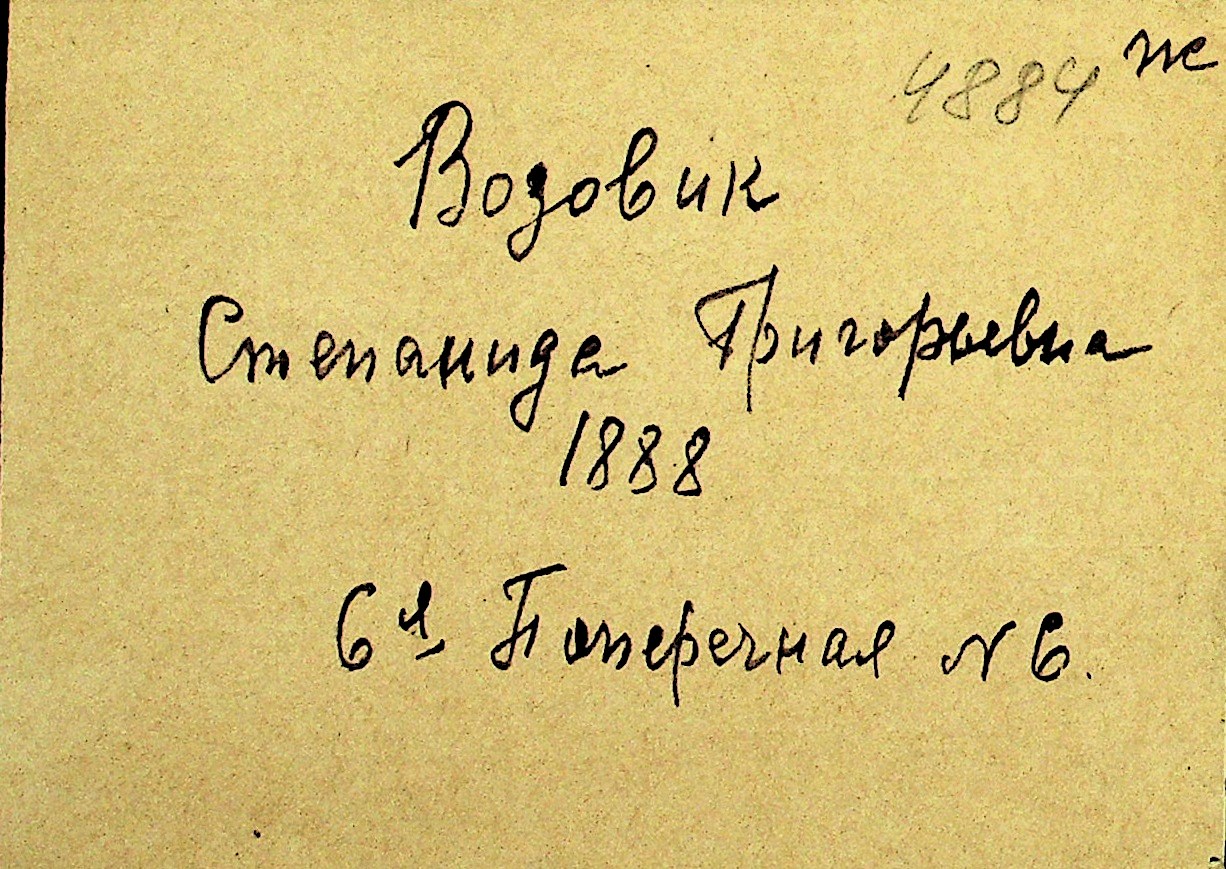 4884 ж
Возовик
Степанида Григорьевна
1888
6я Поперечная N 6.